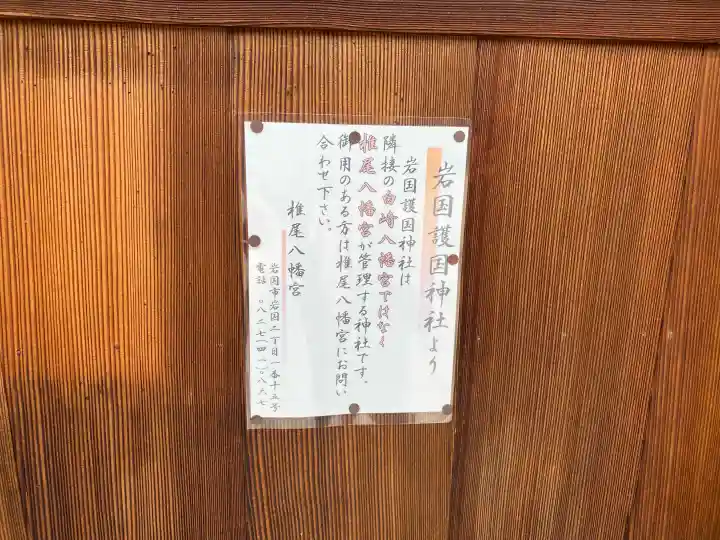 岩国護国神社より
岩国護国神社は
隣接の白崎八幡宮ではなく
椎尾八幡宮が管理する神社です。
御用のある方は椎尾八幡宮にお問い
合わせ下さい。
椎尾八幡宮
岩国市岩国二丁目一番十五号
電話 〇八二七(四一)〇八六七